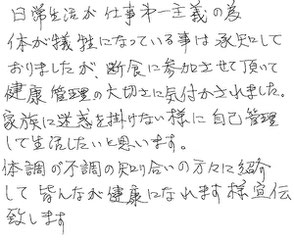 日常生活が仕事第一主義の為
体が犠牲になっている事は承知して
おりましたが、断食に参加させて頂いて
健康管理の大切さに気付かされました。
家族に迷惑を掛けない様に自己管理
して生活したいと思います。
体調が不調の知り合いの方々に紹介
して皆んなが健康になれます様宣伝
致します